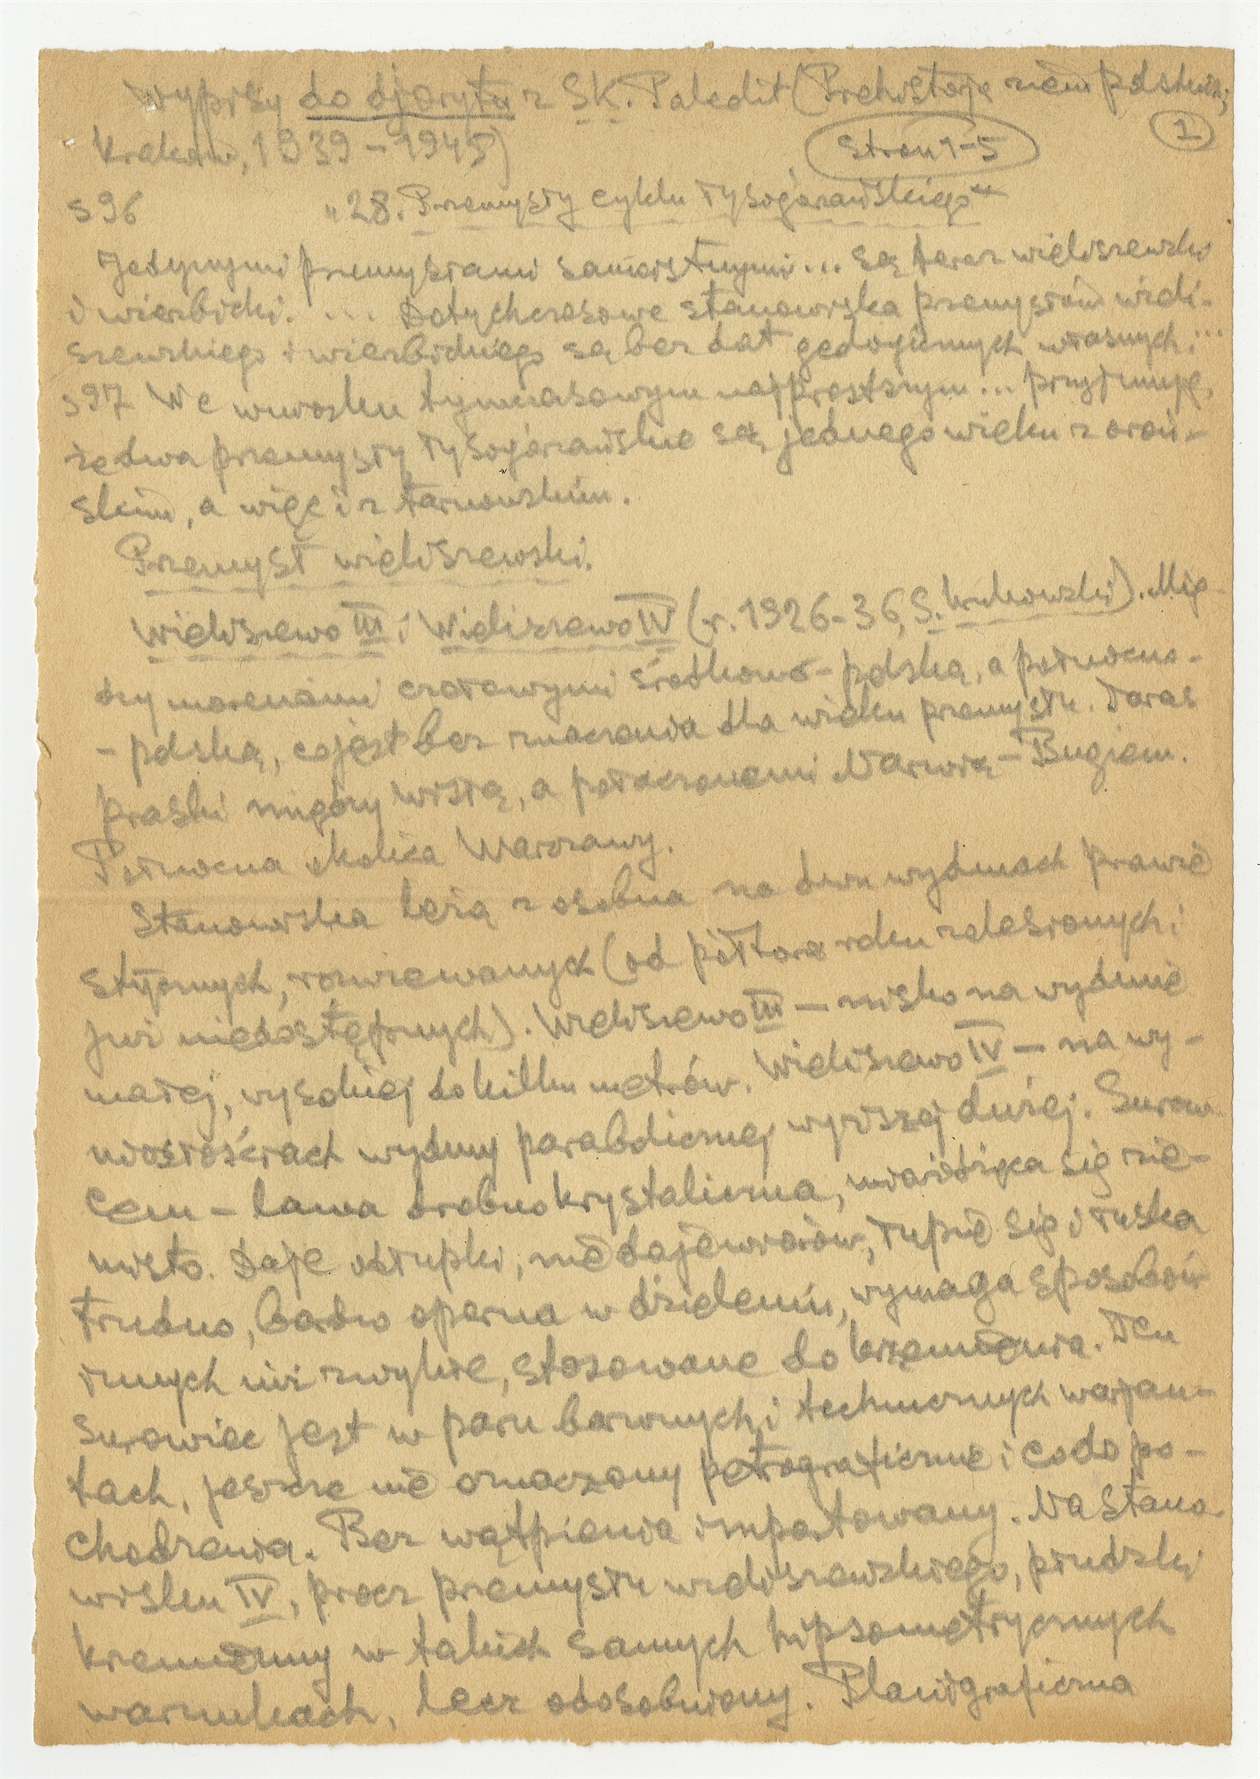 Wypisy do djorytu z SK. Paledit (Prehistorja ziem polskich;
Kraków, 1939–1945)
stron 1–5
1
s 96 „28. Przemysły cyklu łysogórzańskiego"
Jedynymi przemysłami samoistnymi... są teraz wieliszewski
i wierzbicki. ... Dotychczasowe stanowiska przemysłów wieli-
szewskiego i wierzbickiego są bez dat geologicznych własnych; ...
s 97 We wniosku tymczasowym najprostszym... przyjmuję,
że dwa przemysły łysogórzańskie są jednego wieku z oroń-
skim, a więc i z tarnowskim.
Przemysł wieliszewski.
Wieliszewo III i Wieliszewo IV (r. 1926–36, S. Krukowski). Mię-
dzy morenami czołowymi środkowo-polską, a północno-
-polską, co jest bez znaczenia dla wieku przemysłu. Taras
praski między Wisłą, a połączonemi Narwią–Bugiem.
Północna okolica Warszawy.
Stanowiska leżą z osobna na dwu wydmach prawie
stycznych, rozwiewanych (od półtora roku zalesionych i
już niedostępnych). Wieliszewo III – nisko na wydmie
małej, wysokiej do kilku metrów. Wieliszewo IV – na wy-
niosłościach wydmy parabolicznej wyższej dużej. Surow-
cem – lawa drobnokrystaliczna, miażdżąca się zie-
misto. Daje odłupki, nie daje wiórów, łupie się i łuska
trudno, bardzo oporna w dzieleniu, wymaga sposobów
innych niż zwykłe, stosowane do krzemienia. Ten
surowiec jest w paru barwnych i technicznych warjan-
tach, jeszcze nie oznaczony petrograficznie i co do po-
chodzenia. Bez wątpienia importowany. Na stano-
wisku IV, prócz przemysłu wieliszewskiego, płudzki
krzemienny w takich samych hipsometrycznych
warunkach, lecz odosobniony. Planigraficzna